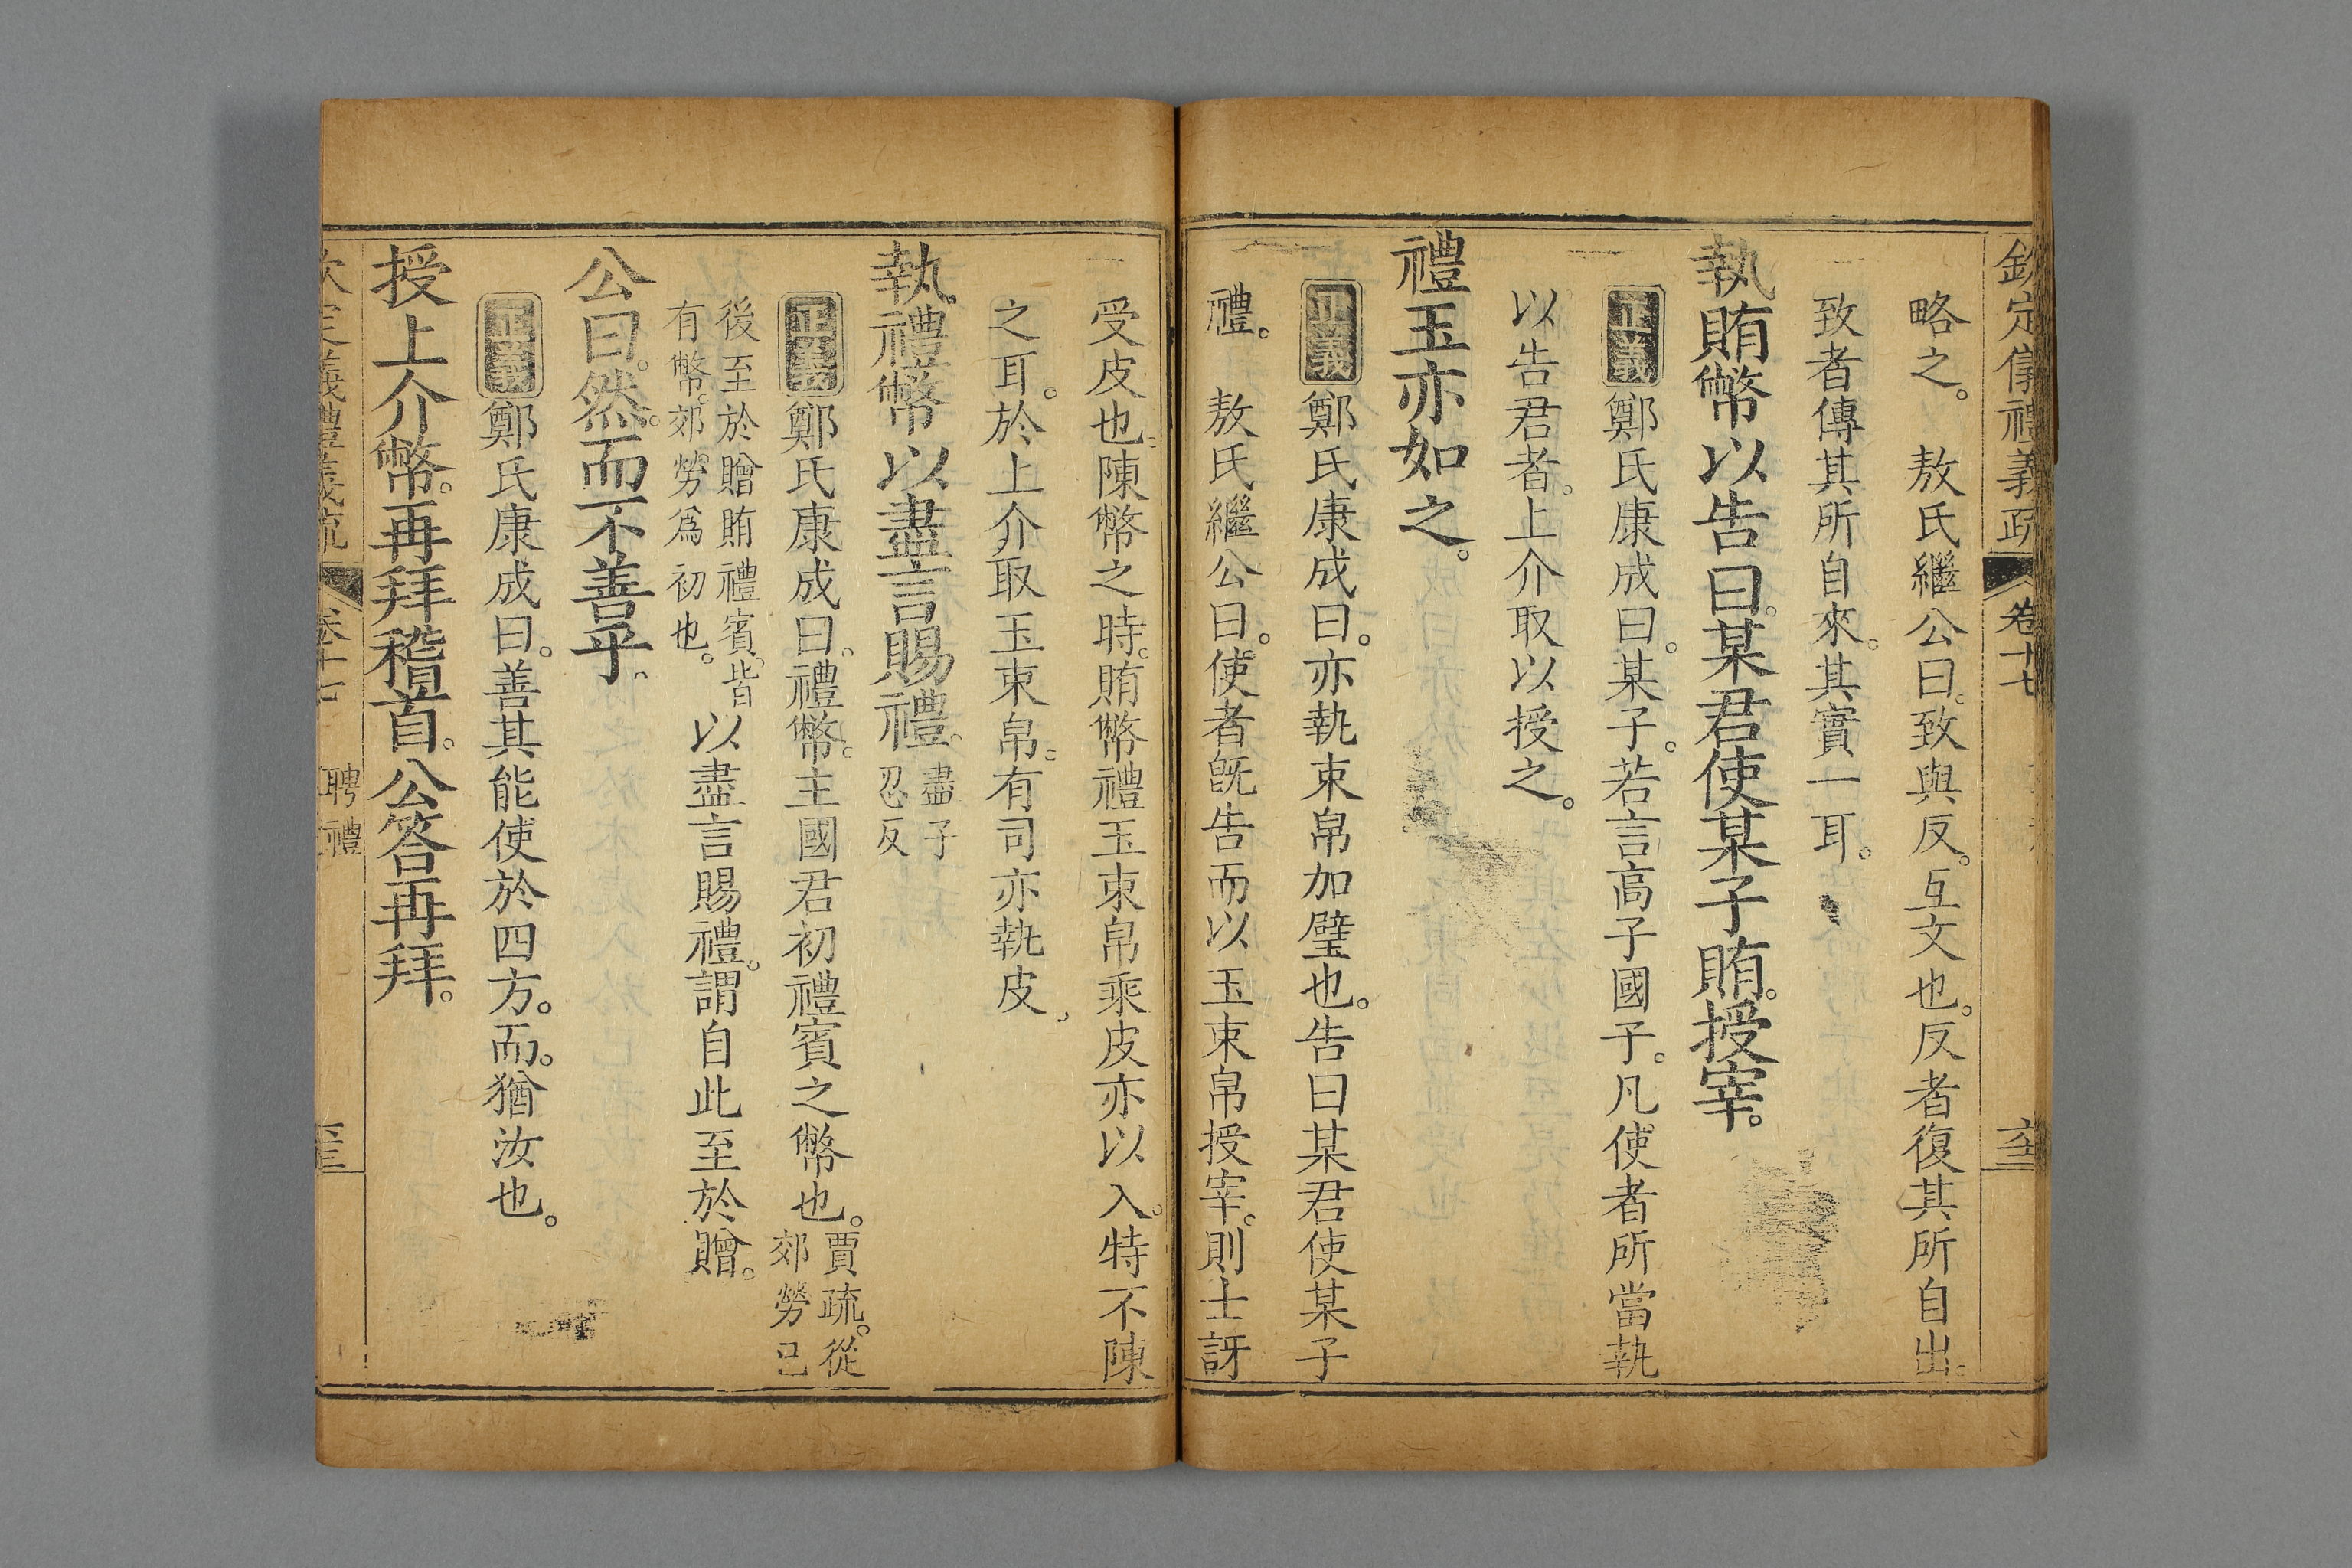 欽定儀禮義疏 卷十七
略之。敖氏繼公曰。致與反。互文也。反者復其所自出。
致者傳其所自來。其實一耳。
執賄幣以告曰。某君使某子賄。授宰。
正義鄭氏康成曰。某子。若言高子國子。凡使者所當執
以告君者。上介取以授之。
禮玉亦如之。
正義鄭氏康成曰。亦執束帛加璧也。告曰某君使某子
禮。敖氏繼公曰。使者旣告而以玉束帛授宰。則士訝
受皮也。陳幣之時。賄幣禮玉束帛乘皮亦以入。特不陳
之耳。於上介取玉束帛。有司亦執皮。
執禮幣以盡言賜禮。盡子
忍反
正義鄭氏康成曰。禮幣。主國君初禮賓之幣也。賈疏。從
郊勞已
後至於贈賄禮賓。皆
有幣。郊勞爲初也。以盡言賜禮。謂自此至於贈。
公曰。然。而不善乎。
正義鄭氏康成曰。善其能使於四方。而。猶汝也。
授上介幣。再拜稽首。公答再拜。
義禮義疏 卷十七 聘禮